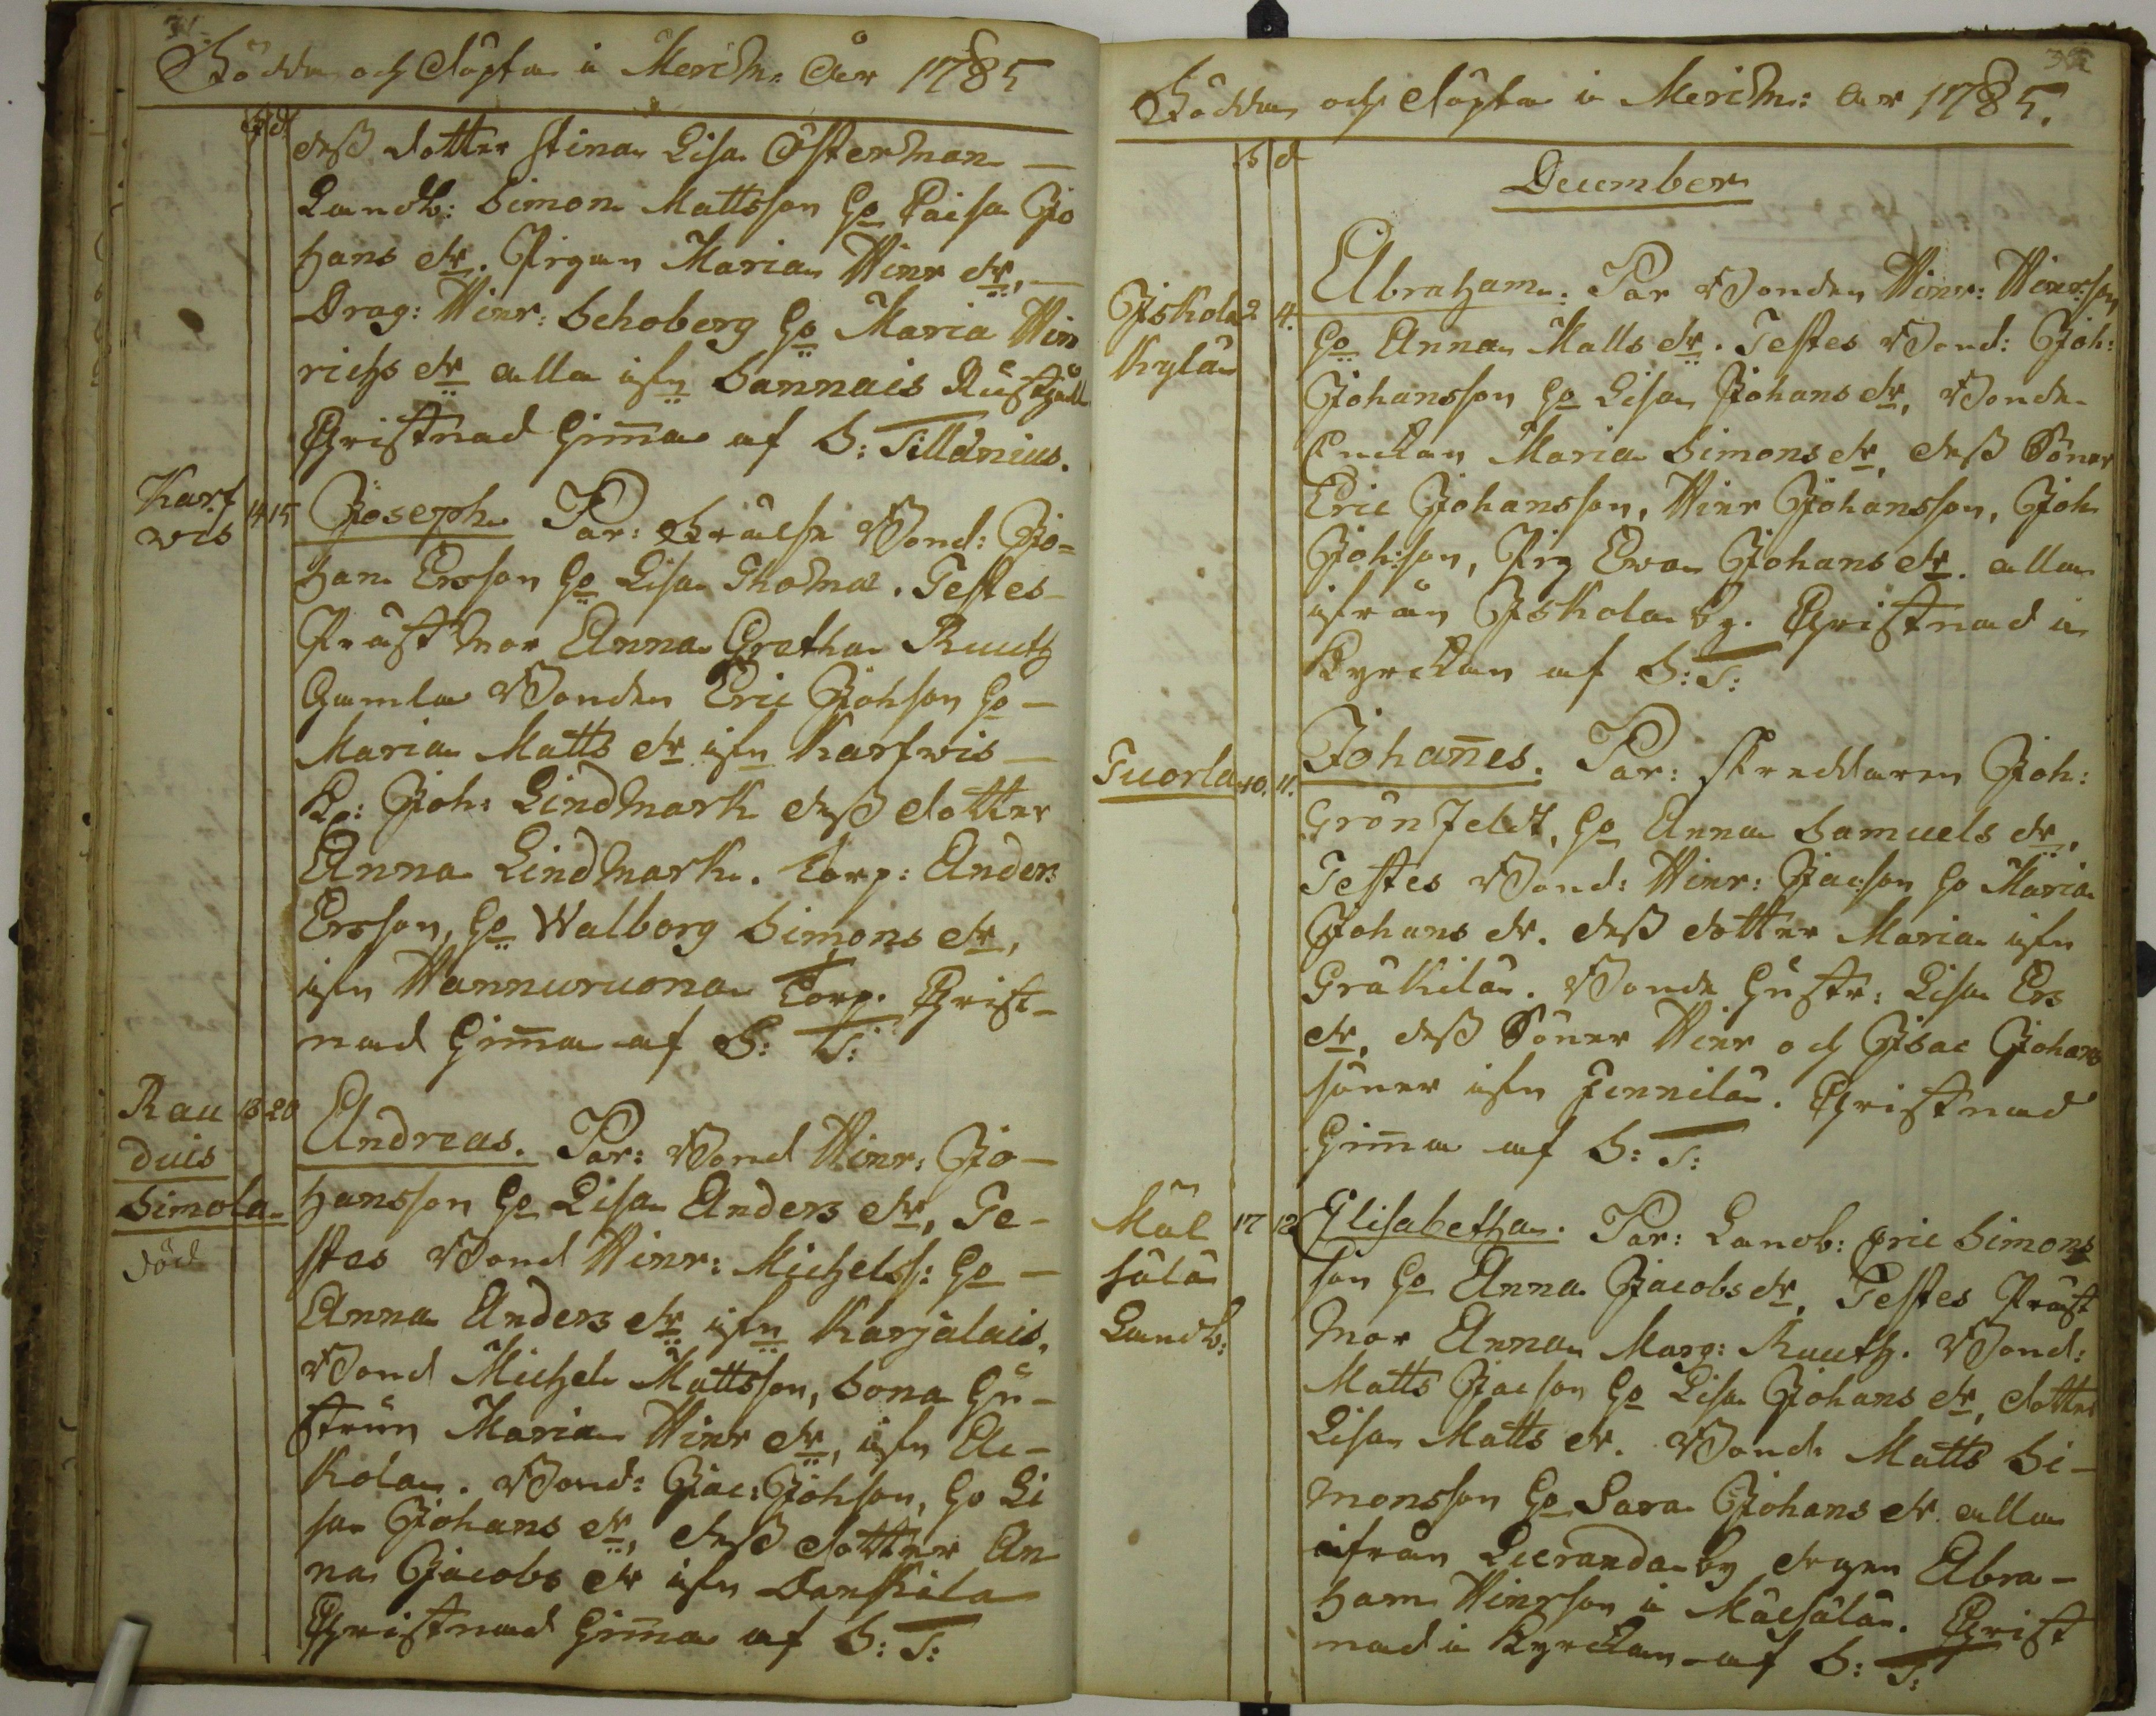 Födde och Döpte i Merim: År 1785
f d
dess dotter Stina Lisa Österman
Landb: Simon Mattsson Ho Caisa Jo
hans dr. Pigan Maria Hinr dr,
Drag: Hinr: Schoberg Ho Maria Hin
richs dr alla ifn Sannais Rusthåll
Christnad hema af S: Tillänius.
Karf
wis
14 15
Joseph Par: Frälse Bond: Jo=
han Ersson Ho Lisa Thomæ. Testes
Präst mor Anna Gretha Ruuth
Gamla Bonden Eric Johson Ho
Maria Matts dr ifn Karfwis
Joh: Lindmark dess dotter
Anna Lindmark. Torp: Anders
Ersson, Ho Walborg Simons dr,
ifn Wannuruona Torp. Christ-
nad hema af S: T:
Rau
duis
Simola
död
18 20
Andreas. Par: Bond Hinr: Jo-
hansson Ho Lisa Anders dr, Te-
stes Bond Hinr: Michels: Ho
Anna Anders dr ifn Karjalais,
Bond Michel Mattsson, Sona Hu-
strun Maria Hinr dr, ifn
kola. Bond: Jac: Johson, Ho Li
sa Johans dr, dess dotter An
na Jacobs dr ifn Dankila
Christnad hema af S: T:
Födde och Döpte i Merim: År 1785.
f d
December
Iskola
kylä
2 4.
Abraham. Par Bonden Hinr: Hinrson
Ho Anna Matts dr. Testes Bond: Joh:
Johansson Ho Lisa Johans dr, Bonde
Enckan Maria Simons dr, dess Söner
Eric Johansson, Hinr Johansson, Joh
Johson, Pig Ewa Johans dr. alla
ifrån Iskola by. Christnad i
Kyrckan af S: T:
Tuorla
10. 11.
Johanes. Par: skreddaren Joh:
Grönfeldt, Ho Anna Samuels dr,
Testes Bond: Hinr: Jacson Ho Maria
Johans dr. dess dotter Maria ifn
Gräkilä. Bonde Hustr: Lisa Ers
dr, dess Söner Hinr och Isac Johans
söner ifn Jennilä. Christnad
hema af S: T:
Mäl
sälä
Landb:
17 18
Elisabetha. Par: Landb: Eric Simons
son Ho Anna Jacobs dr, Testes Präst
mor Anna Marg: Ruuth. Bond:
Matts Jacson Ho Lisa Johans dr, dotter
Lisa Matts dr. Bond: Matts Si-
monsson Ho Sara Johans dr. alla
ifrån Lieranda by drgen Abra-
ham Hinrson i Mälsälä. Christ
nad i Kyrckan af S: T: